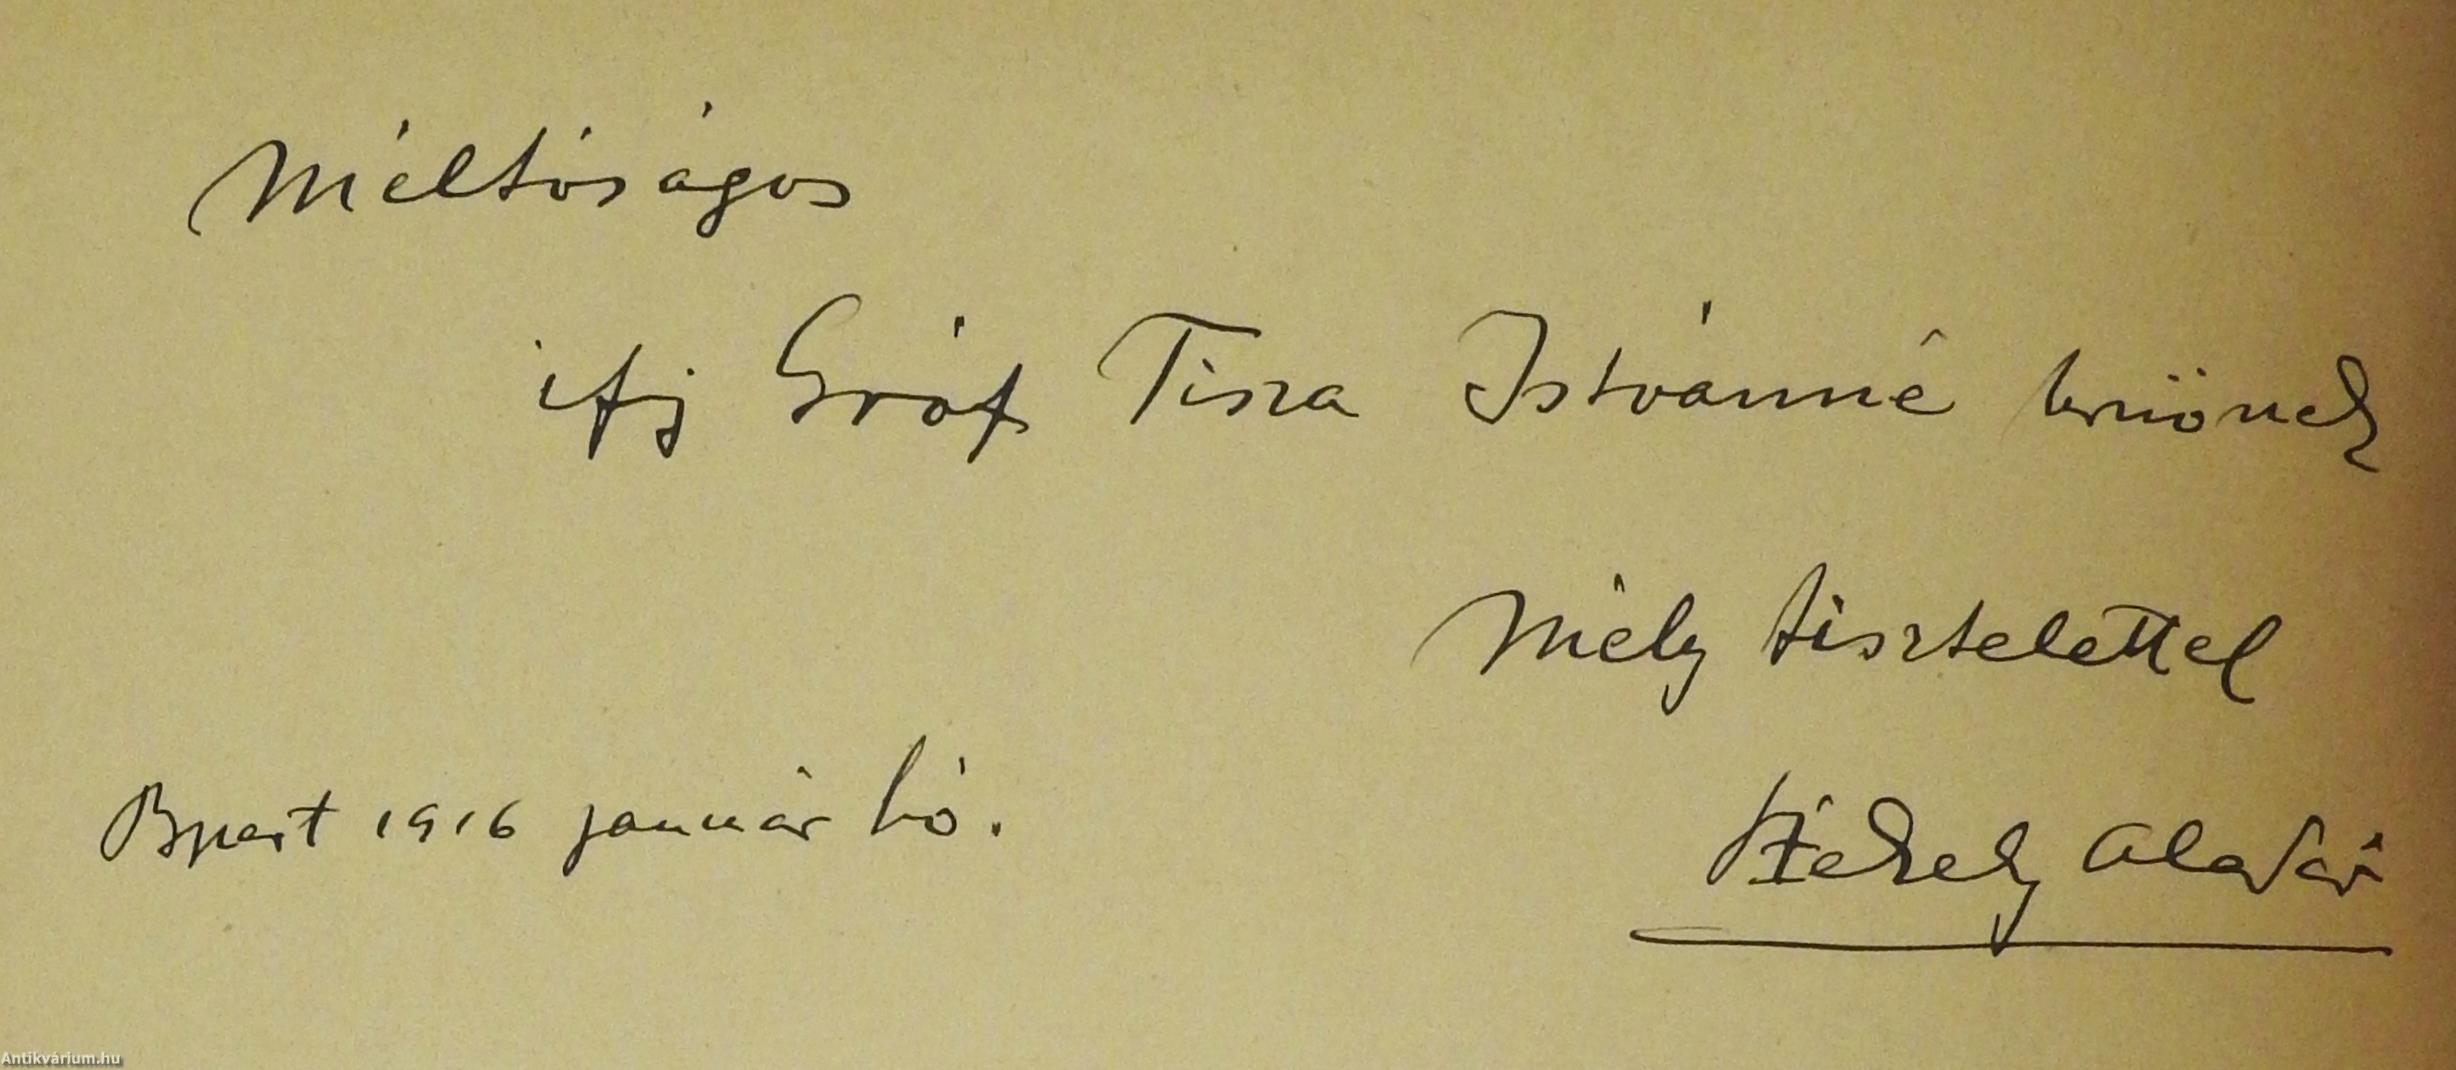 Méltóságos
ifj Gróf Tisza Istvánné úrnőnek
mély tisztelettel
Bpest 1916 január hó.
Székely Aladár
Antikvárium.hu